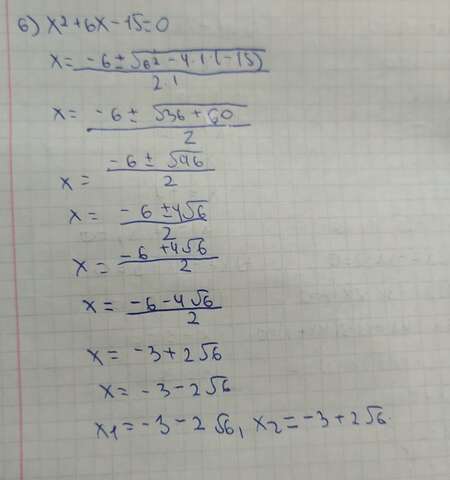 б) x²+6x-15=0
x= -6±√6²-4·1·(-15) / 2·1
x= -6±√36+60 / 2
x= -6±√96 / 2
x= -6±4√6 / 2
x= -6+4√6 / 2
x= -6-4√6 / 2
x= -3+2√6
x= -3-2√6
x1=-3-2√6, x2=-3+2√6.